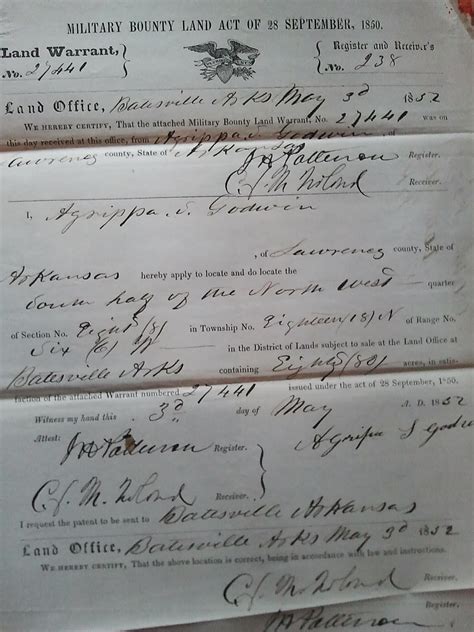 MILITARY BOUNTY LAND ACT OF 28 SEPTEMBER, 1850.
Land Warrant,
No. 27441
Register and Receiver's
No. 238
Land Office, Batesville Arks May 3d 1852
WE HEREBY CERTIFY, That the attached Military Bounty Land Warrant, No. 27441 was on
this day received at this office, from Agrippa S. Godwin, of
Lawrence county, State of Arkansas
J H Patterson Register.
C. F. M. Noland Receiver.
I, Agrippa S. Godwin
, of Lawrence county, State of
Arkansas hereby apply to locate and do locate the
South half of the North West quarter
of Section No. Eight (8) in Township No. Eighteen (18) N of Range No.
Six (6) W in the District of Lands subject to sale at the Land Office at
Batesville Arks containing Eighty (80) acres, in satis-
faction of the attached Warrant numbered 27441 issued under the act of 28 September, 1850.
Witness my hand this 3d day of May A. D. 1852
Attest:
Agrippa S Godwin
J H Patterson Register.
C. F. M. Noland Receiver.
I request the patent to be sent to Batesville Arkansas
Land Office, Batesville Arks May 3d 1852
WE HEREBY CERTIFY, That the above location is correct, being in accordance with law and instructions.
C. F. M. Noland Receiver.
J H Patterson Register.